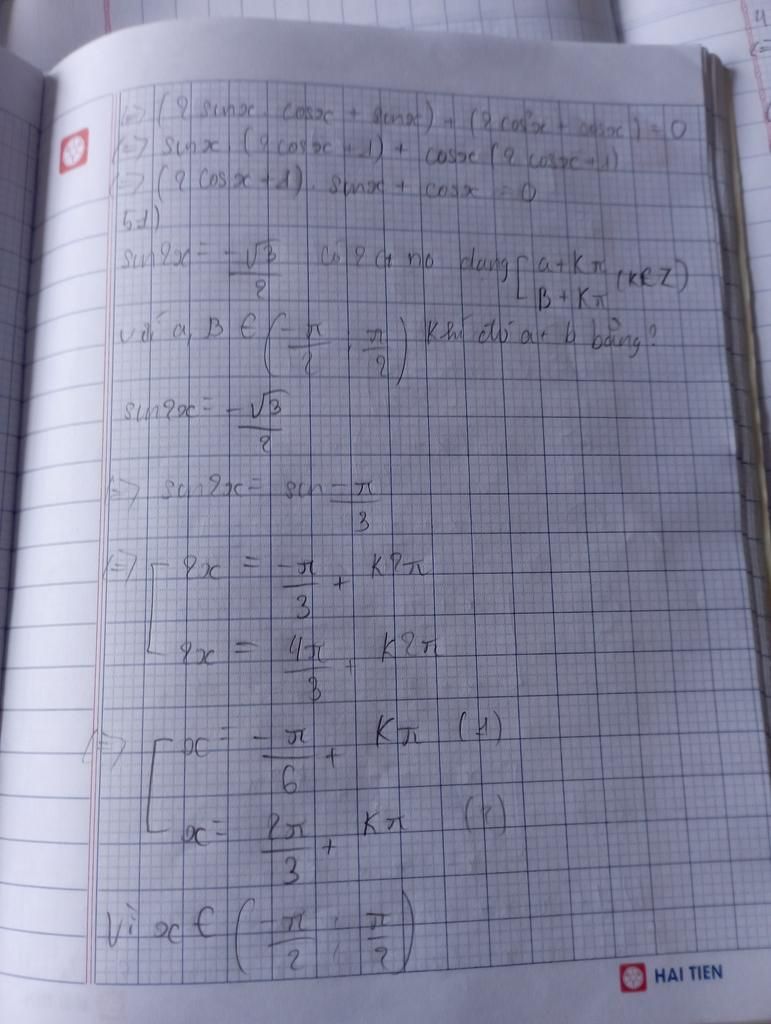 <=> (2 sinx cosx + sinx) + (2 cos²x + cosx) = 0
<=> sinx (2 cosx + 1) + cosx (2 cosx + 1)
<=> (2 cosx + 1) . sinx + cosx = 0
51)
sin2x = -√3/2 có 2 ct no dạng [a + Kπ (K∈Z)
B + Kπ
với a, B ∈ (-π/2 ; π/2) Khi đó a + b bằng?
sin2x = -√3/2
<=> sin2x = sin -π/3
<=> [2x = -π/3 + K2π
2x = 4π/3 + K2π
<=> [x = -π/6 + Kπ (1)
x = 2π/3 + Kπ (2)
Vì x ∈ (-π/2 ; π/2)
HAI TIEN